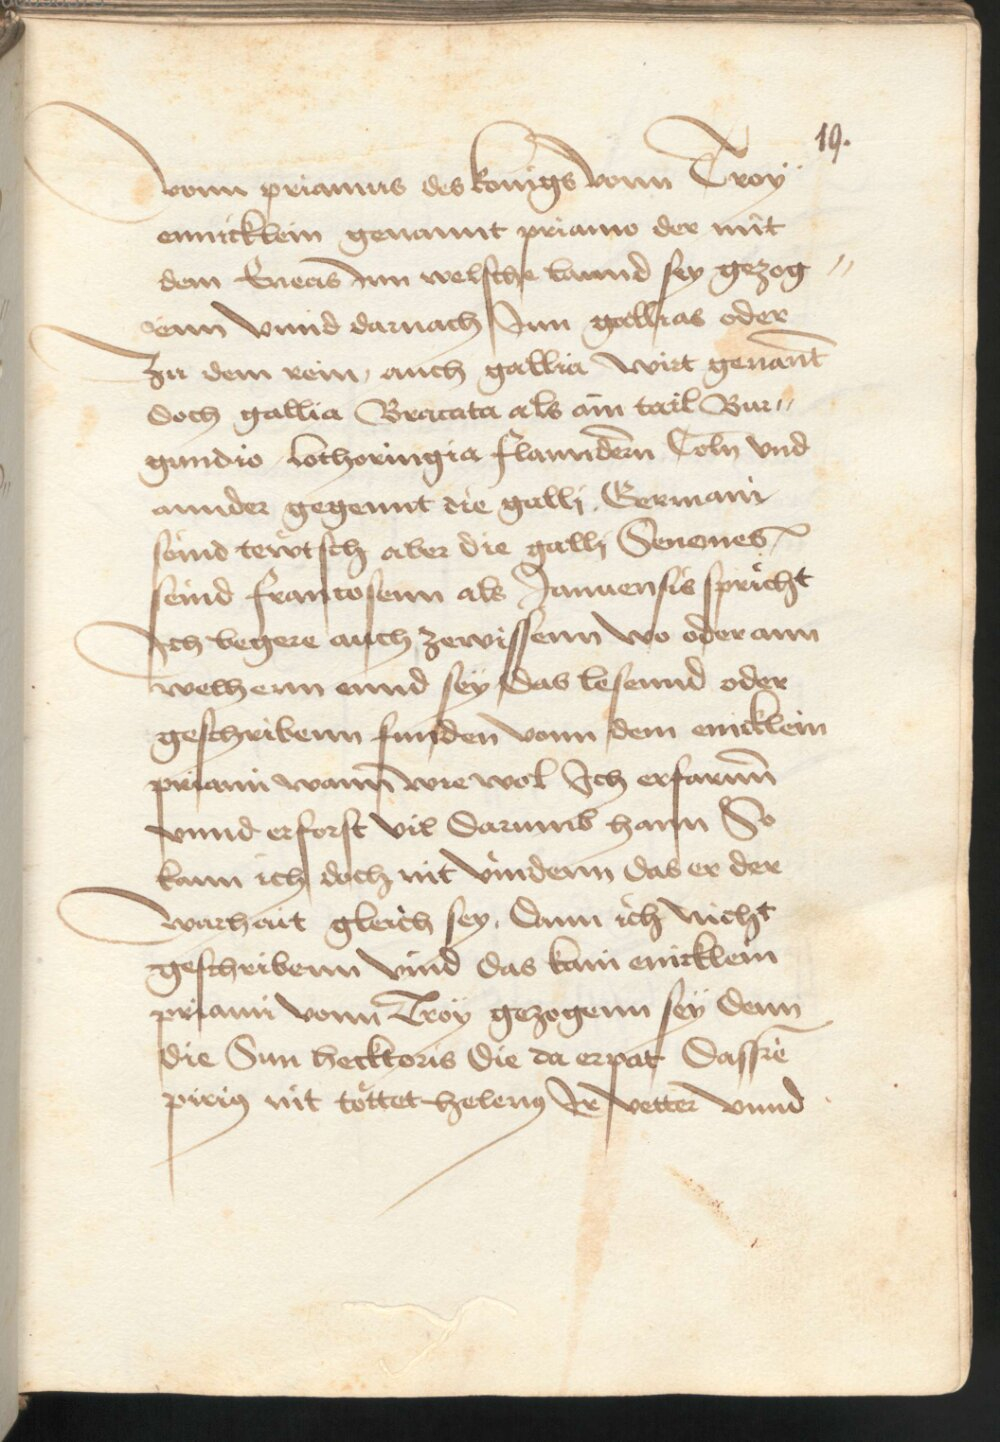 19.
vonn priamus des konigs vonn Troy
enncklein genannt priamo der mit
dem Eneas Inn welsche lannd sey gezog //
enn vnnd darnach Inn gallias oder
Zu dem rein, auch gallia wirt genant
doch gallia Bracata als ain tail Bur //
gundio Lothoringia flanndern Coln vnd
annder gegennt die galli. Germani
seind tewtsch aber die galli Senones
seind francosenn als Januensis spricht
Ich begere auch zewissenn wo oder ann
welhenn ennd sey das lesennd oder
geschribenn funden vonn dem enicklein
priami wann wie wol Ich erfarnn
vnnd erforst vil Darumb hann So
kann ich doch nit vindenn das er der
warhait gleich sey. Dann ich nicht
geschribenn vind das kain enicklein
priami vonn Troy gezogenn sey denn
die Sun hecktoris Die da erpat Dassie
pirius nit tottet helenus Ir vetter vnnd